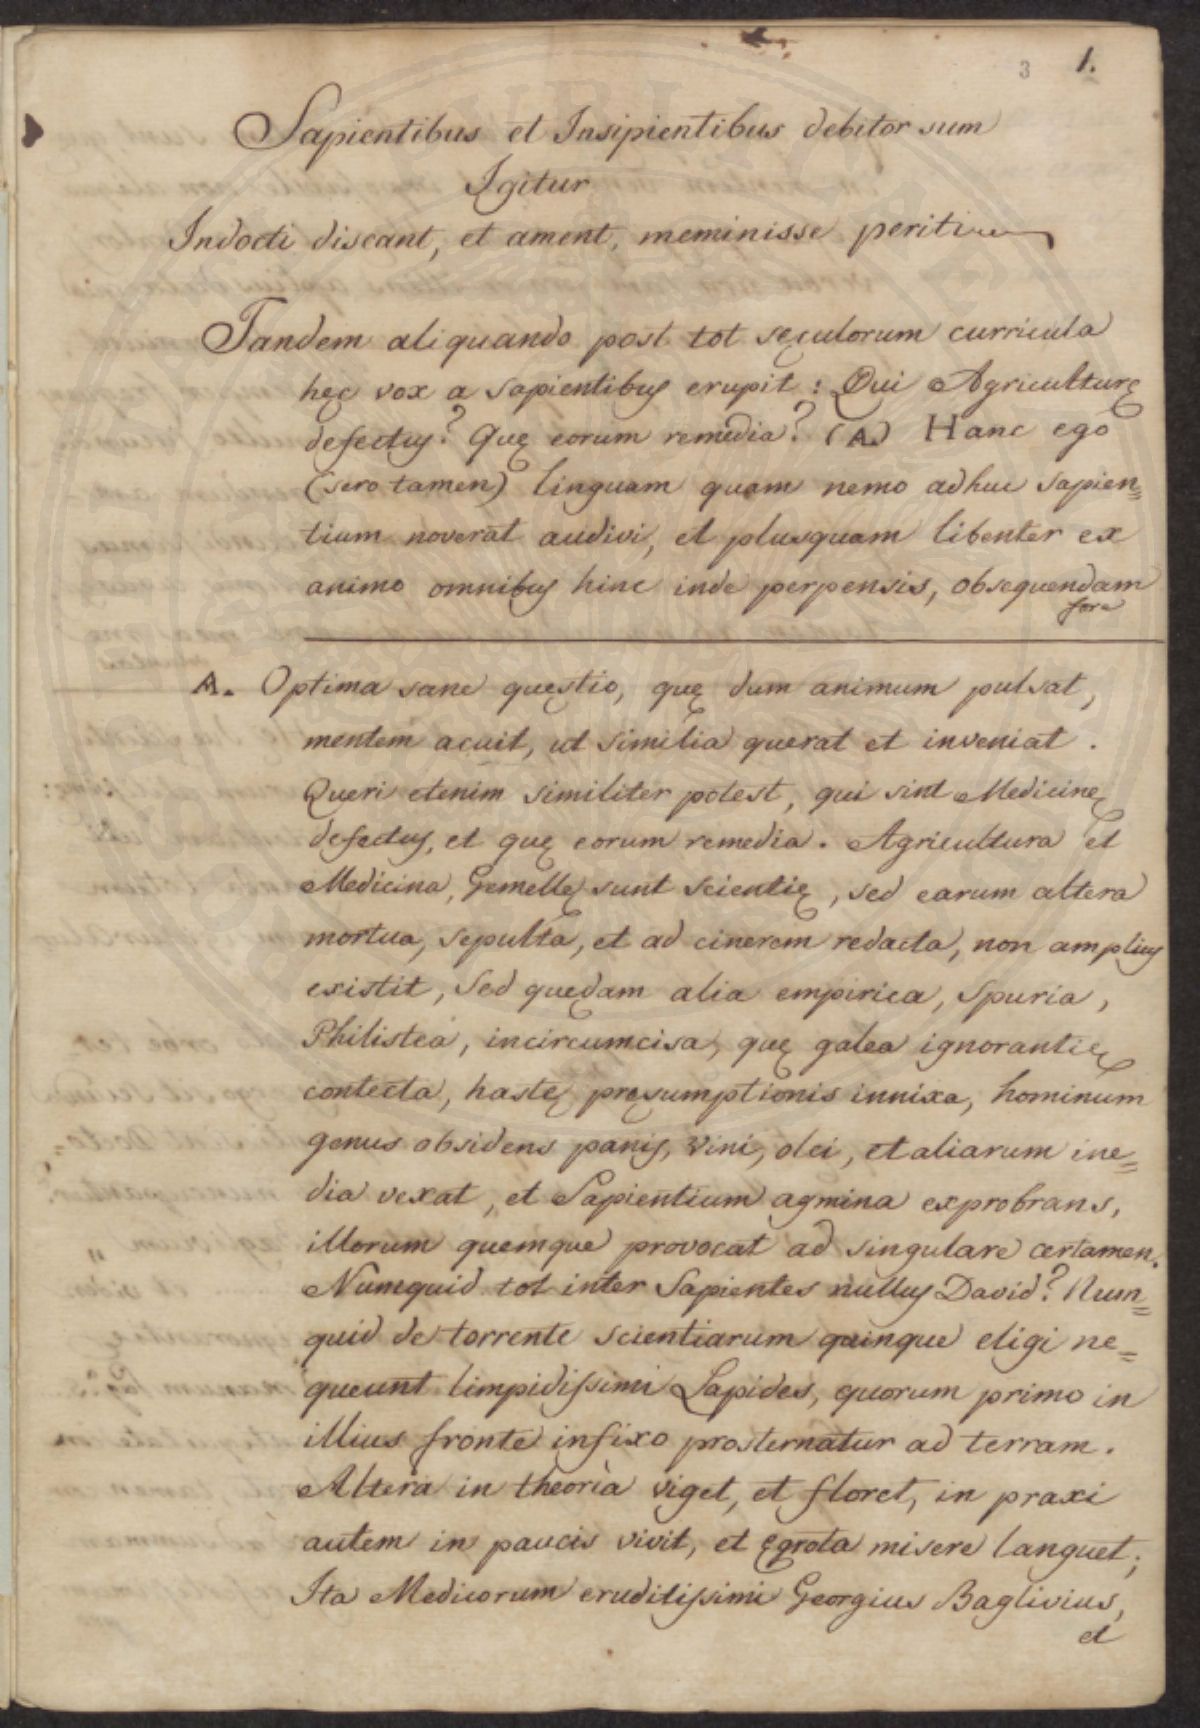 3 1.
Sapientibus et Insipientibus debitor sum
Igitur
Indocti discant, et ament, meminisse periti
Tandem aliquando post tot sęculorum curricula
hęc vox a sapientibus erupit : Qui Agriculturę
defectus? Quę eorum remedia? (A.) Hanc ego
(sero tamen) linguam quam nemo adhuc sapien=
tium noverat audivi, et plusquam libenter ex
animo omnibus hinc inde perpensis, obsequendam
fore
A. Optima sane quęstio, quę dum animum pulsat,
mentem acuit, ut similia querat et inveniat .
Quęri etenim similiter potest, qui sint Medicinę
defectus, et quę eorum remedia. Agricultura et
Medicina, Gemellę sunt scientię, sed earum altera
mortua, sepulta, et ad cinerem redacta, non amplius
existit, sed quędam alia empirica, spuria,
Philistea, incircumcisa, quę galea ignorantię
contecta, hastę pręsumptionis innixa, hominum
genus obsidens panis, vini, olei, et aliarum ine=
dia vexat, et Sapientium agmina exprobrans,
illorum quemque provocat ad singulare certamen.
Numquid tot inter Sapientes nullus David? Num=
quid de torrente scientiarum quinque eligi ne=
queunt limpidissimi Lapides, quorum primo in
illius fronte infixo prosternatur ad terram.
Altera in theorìa viget, et floret, in praxi
autem in paucis vivit, et ęgrota misere languet;
Ita Medicorum eruditissimi Georgius Baglivius,
et